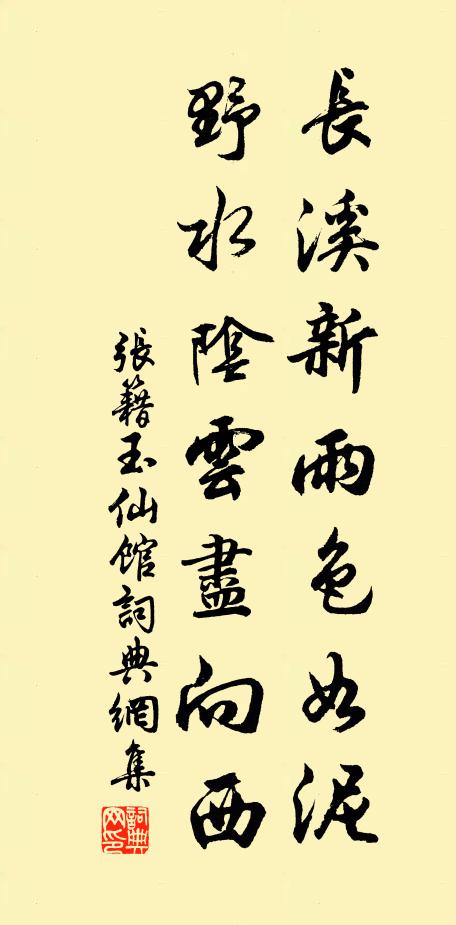 長溪新雨色如泥
野水陰雲盡向西
張籍玉仙館詞典網集
詞典網印